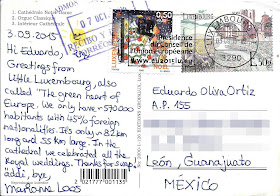 1. Cathédrale Notre-Dame
2. Orgue Classique
3. Intérieur Cathédrale
3.09.2015
Hi Eduardo,
Greetings from
little Luxembourg, also
called "The green heart of
Europe. We only have 570000
habitants with 45% foreign
nationalities. It's only 82km
long and 55 km large. In the
cathedral we celebrated all the
Royal weddings. Thanks for swap!
addi, bye,
Marianne
07 OCT.
RECIBO Y
CORREOS
0,50
Présidence
du Conseil de
l'Union européenne
www.eu2015lu.eu
LUXEMBOURG
L50g
2 021777 001135
Eduardo Oliva Ortiz
A.P. 155
León, Guanajuato
MÉXICO